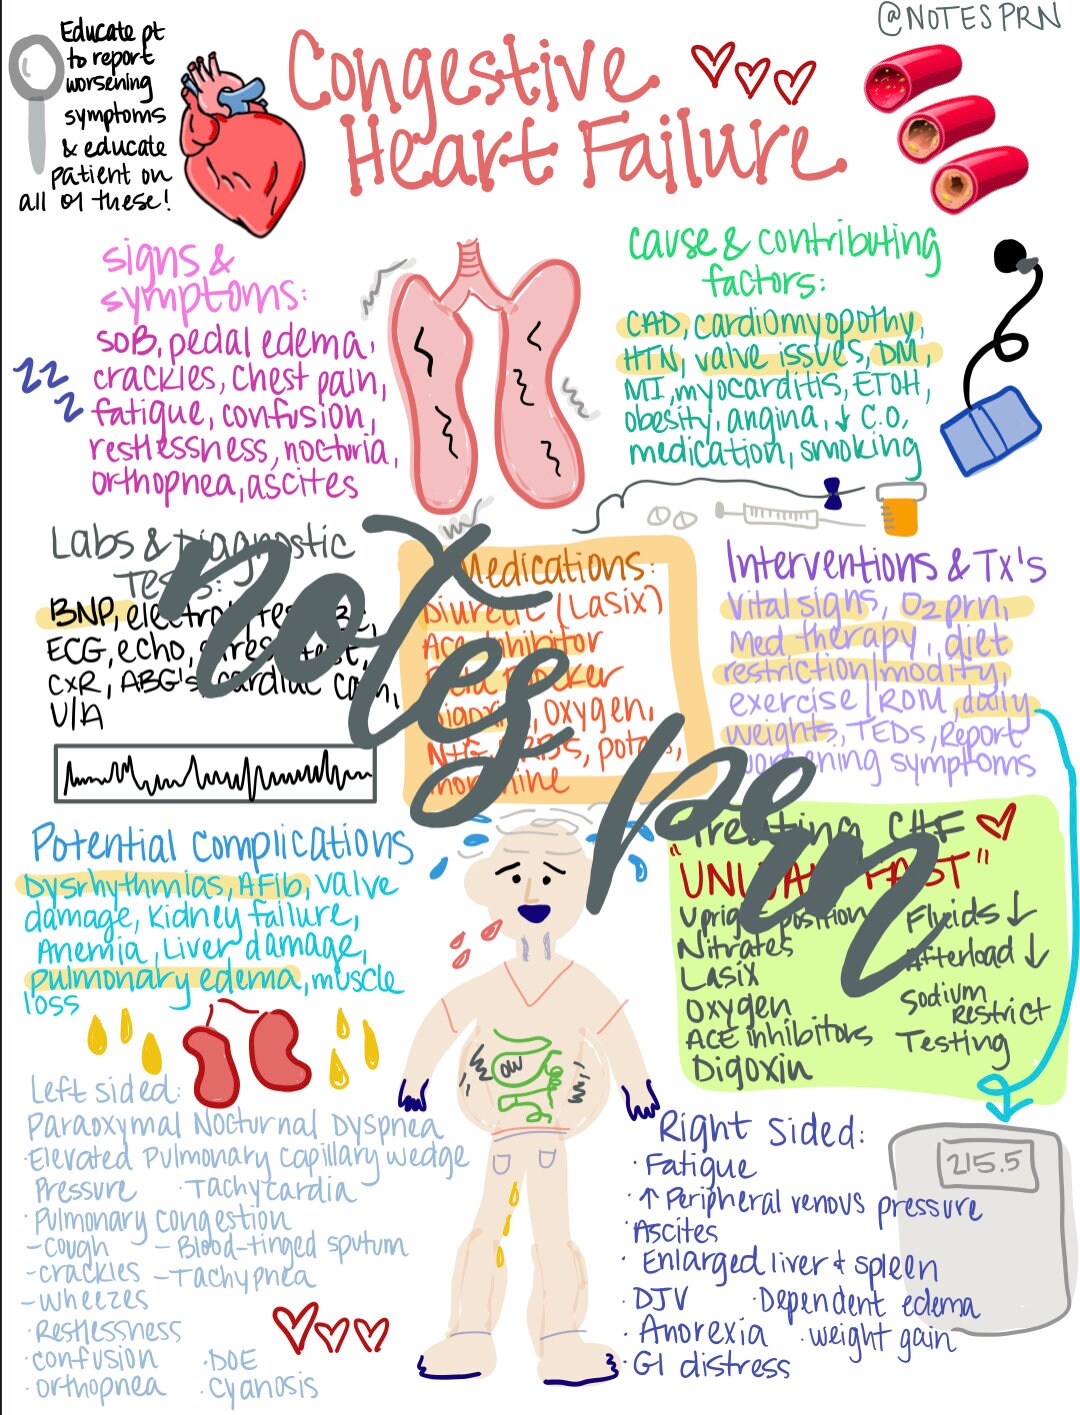 @NOTESPRN
Educate pt
to report
worsening
symptoms
& educate
patient on
all of these!
Congestive
Heart Failure
signs &
symptoms:
SOB, pedal edema,
crackles, chest pain,
fatigue, confusion,
restlessness, nocturia,
orthopnea, ascites
zz
z
cause & contributing
factors:
CAD, cardiomyopothy,
HTN, valve issues, DM,
MI, myocarditis, ETOH,
obesity, angina, ↓ C.O,
medication, smoking
Labs & Diagnostic
Tests:
BNP, electrolytes,
ECG, echo, stress test,
CXR, ABG's, cardiac cath,
U/A
Medications:
Diuretic (Lasix)
Ace Inhibitor
Beta Blocker
Digoxin, oxygen,
morphine
Interventions & Tx's
Vital signs, O2 prn,
Med therapy, diet
restriction/modify,
exercise/ROM, daily
weights, TEDs, Report
worsening symptoms
notes prn
Potential Complications
Dysrhythmias, AFib, valve
damage, Kidney failure,
Anemia, Liver damage,
pulmonary edema, muscle
loss
Treating CHF
"UNLOAD FAST"
Upright position
Nitrates
Lasix
Oxygen
ACE inhibitors
Digoxin
Fluids ↓
Afterload ↓
Sodium
Restrict
Testing
ow
Left sided:
Paraoxymal Nocturnal Dyspnea
·Elevated Pulmonary Capillary wedge
Pressure ·Tachycardia
·Pulmonary congestion
-cough -Blood-tinged sputum
-crackles -Tachypnea
-wheezes
·Restlessness
·confusion ·DOE
·orthopnea ·Cyanosis
Right Sided:
·Fatigue
·↑ Peripheral venous pressure
·Ascites
·Enlarged liver & spleen
·DJV ·Dependent edema
·Anorexia ·weight gain
·GI distress
215.5